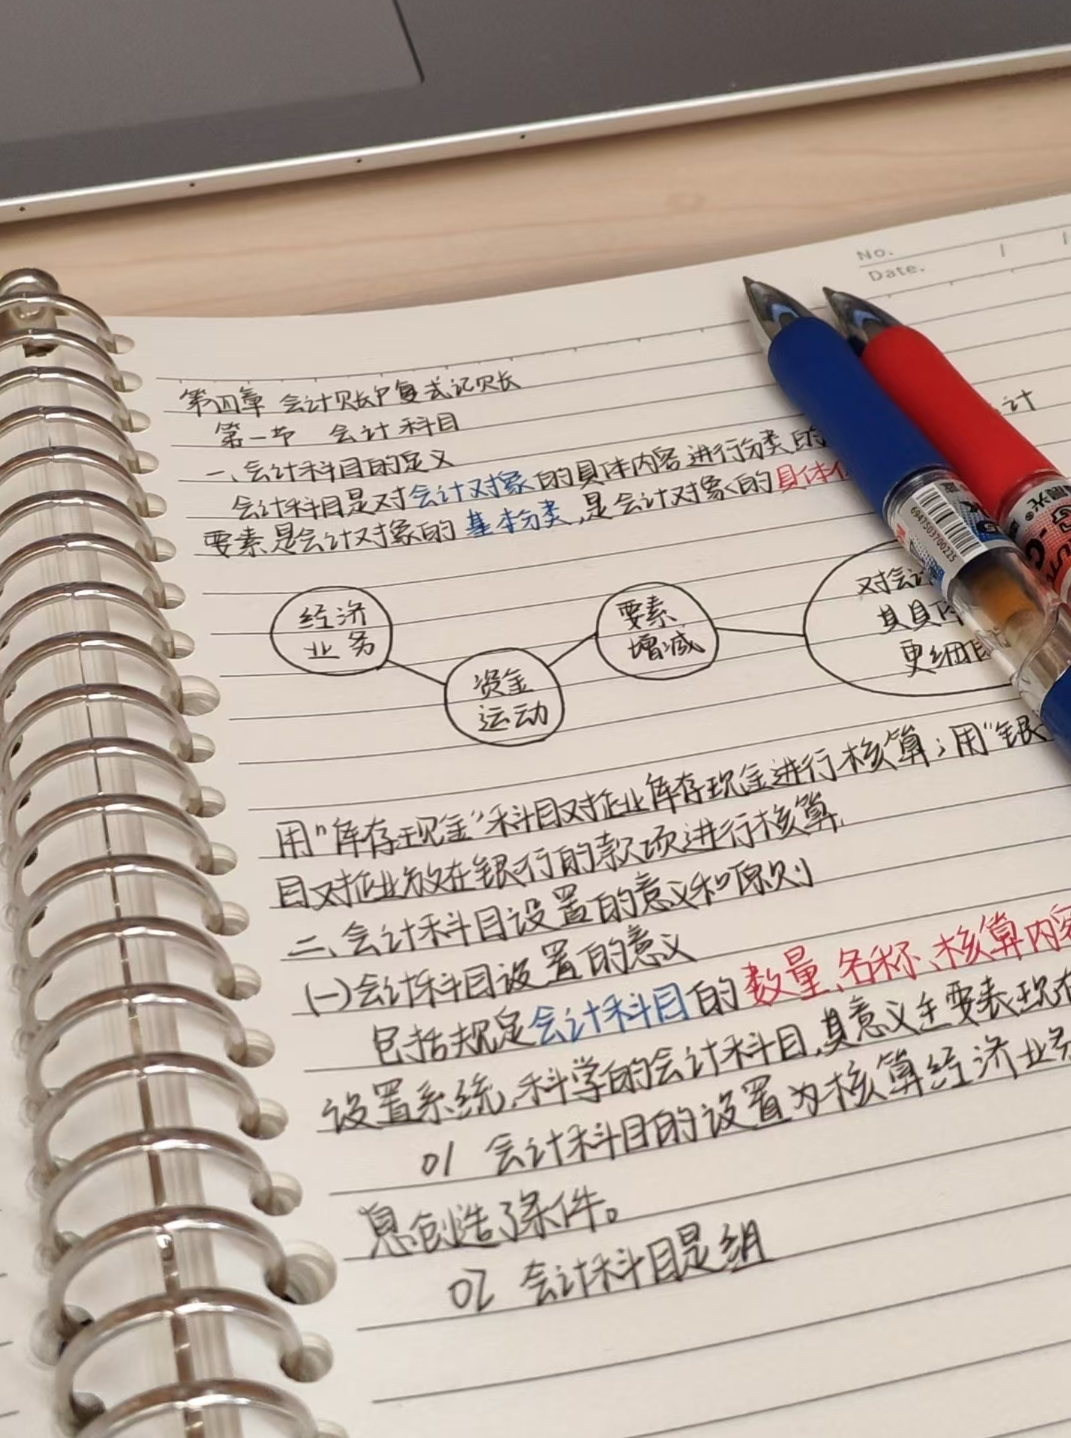 No.
Date.
第四章 会计账户复式记账
第一节 会计科目
一、会计科目的定义
会计科目是对会计对象的具体内容进行分类的
计
要素是会计对象的基本分类,是会计对象的具体
经济
业务
资金
运动
要素
增减
对会计
其具
更细
用"库存现金"科目对企业库存现金进行核算;用"银
目对企业放在银行的款项进行核算.
二、会计科目设置的意义和原则
(一)会计科目设置的意义
包括规定会计科目的数量、名称、核算内容
设置系统、科学的会计科目,其意义主要表现在
01 会计科目的设置为核算经济业务
息创造了条件。
02 会计科目是组
6947503700225